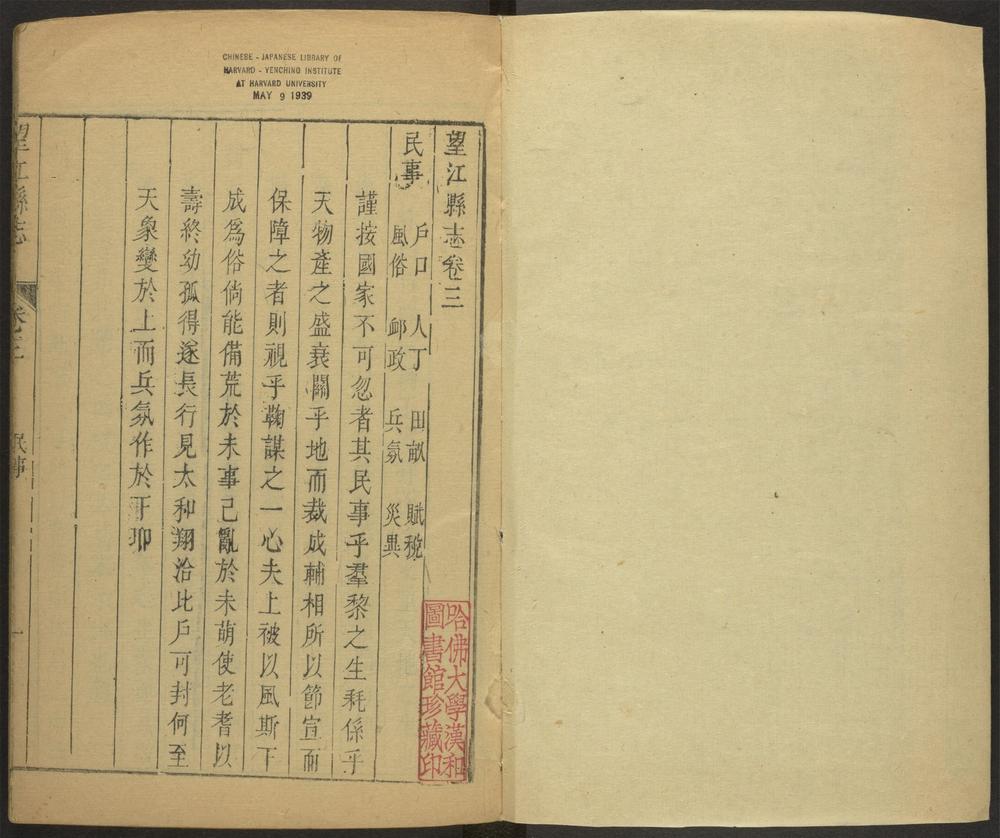 CHINESE - JAPANESE LIBRARY OF
HARVARD - YENCHING INSTITUTE
AT HARVARD UNIVERSITY
MAY 9 1939
望江縣志卷三
民事
戶口 人丁 田畝 賦稅
風俗 卹政 兵氛 災異
謹按國家不可忽者其民事乎羣黎之生耗係乎
天物產之盛衰關乎地而裁成輔相所以節宣而
保障之者則視乎鞠謀之一心夫上被以風斯下
成爲俗倘能備荒於未事己亂於未萌使老耆以
壽終幼孤得遂長行見太和翔洽比戶可封何至
天象變於上而兵氛作於下耶
望江縣志
卷三
民事
一
哈佛大學漢和
圖書館珍藏印